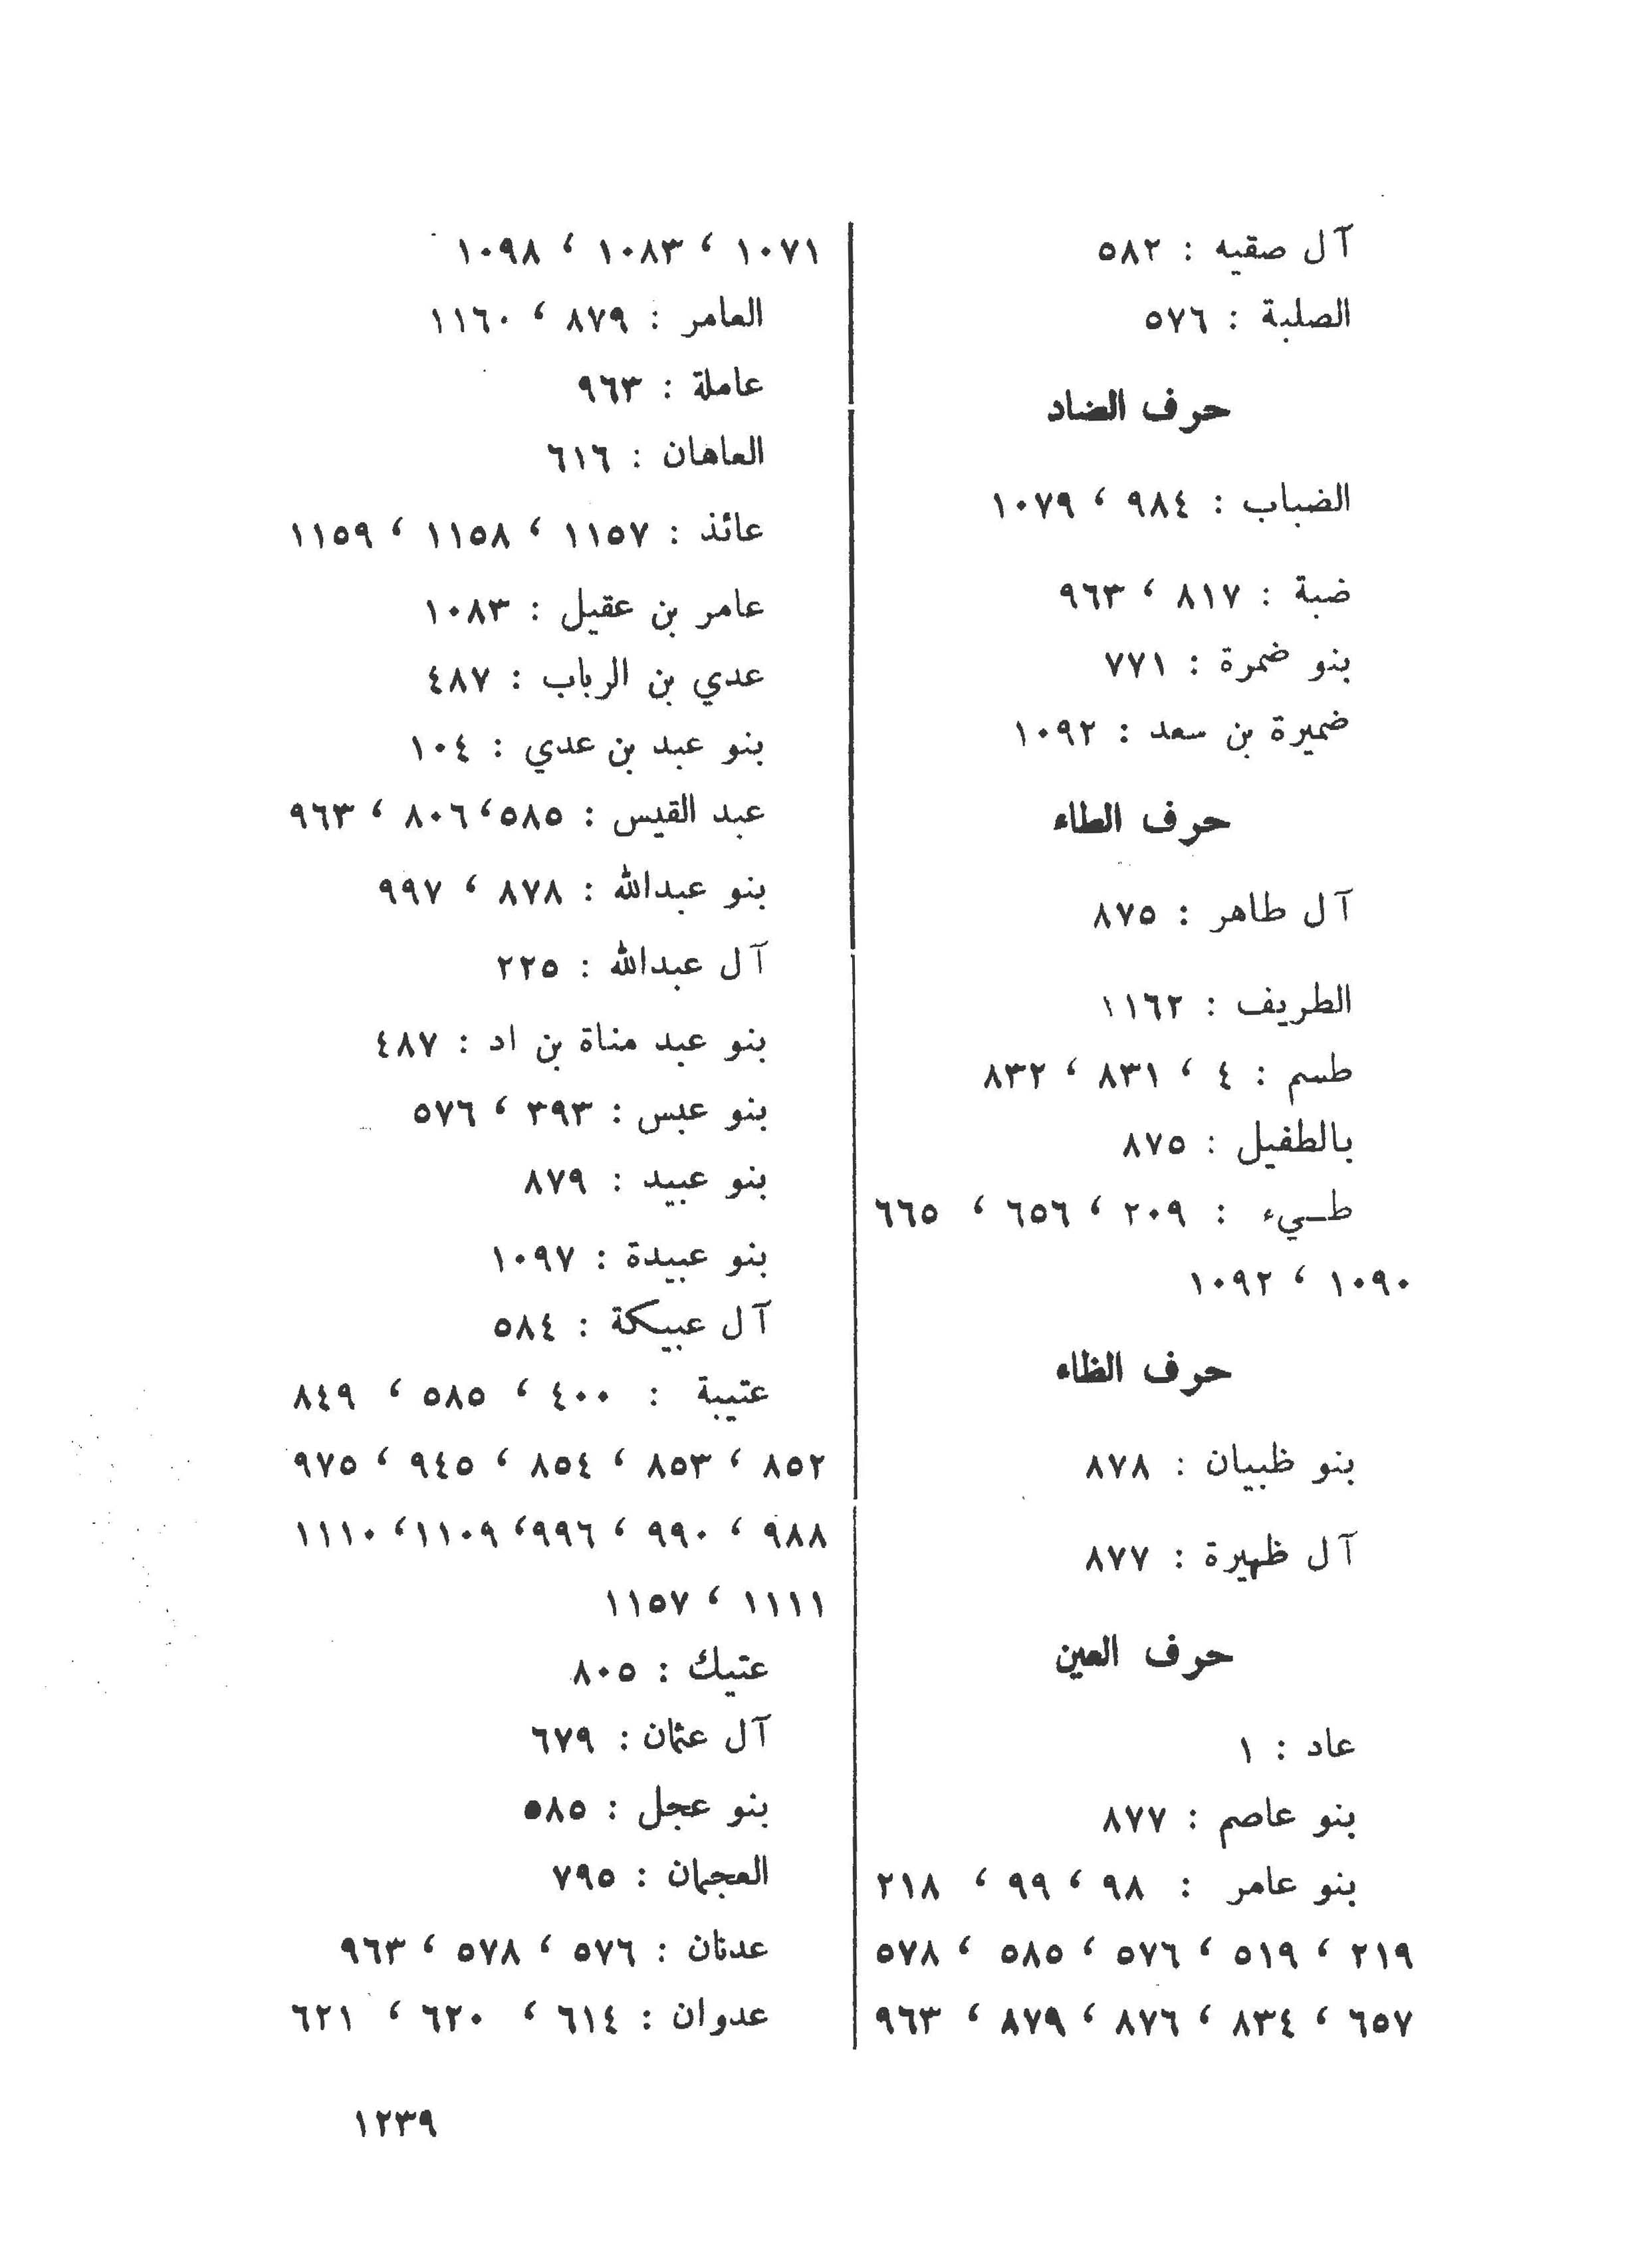 آل صقيه : ٥٨٢
الصلبة : ٥٧٦
حرف الضاد
الضباب : ٩٨٤ ، ١٠٧٩
ضبة : ٨١٧ ، ٩٦٣
بنو ضمرة : ٧٧١
ضميرة بن سعد : ١٠٩٢
حرف الطاء
آل طاهر : ٨٧٥
الطريف : ١١٦٢
طسم : ٤ ، ٨٣١ ، ٨٣٢
بالطفيل : ٨٧٥
طـيء : ٢٠٩ ، ٦٥٦ ، ٦٦٥
١٠٩٠ ، ١٠٩٢
حرف الظاء
بنو ظبيان : ٨٧٨
آل ظهيرة : ٨٧٧
حرف العين
عاد : ١
بنو عاصم : ٨٧٧
بنو عامر : ٩٨ ، ٩٩ ، ٢١٨
٢١٩ ، ٥١٩ ، ٥٧٦ ، ٥٨٥ ، ٥٧٨
٦٥٧ ، ٨٣٤ ، ٨٧٦ ، ٨٧٩ ، ٩٦٣
١٠٧١ ، ١٠٨٣ ، ١٠٩٨
العامر : ٨٧٩ ، ١١٦٠
عاملة : ٩٦٣
العاهان : ٦١٦
عائذ : ١١٥٧ ، ١١٥٨ ، ١١٥٩
عامر بن عقيل : ١٠٨٣
عدي بن الرباب : ٤٨٧
بنو عبد بن عدي : ١٠٤
عبد القيس : ٥٨٥ ، ٨٠٦ ، ٩٦٣
بنو عبدالله : ٨٧٨ ، ٩٩٧
آل عبدالله : ٢٢٥
بنو عبد مناة بن اد : ٤٨٧
بنو عبس : ٣٩٣ ، ٥٧٦
بنو عبيد : ٨٧٩
بنو عبيدة : ١٠٩٧
آل عبيكة : ٥٨٤
عتيبة : ٤٠٠ ، ٥٨٥ ، ٨٤٩
٨٥٢ ، ٨٥٣ ، ٨٥٤ ، ٩٤٥ ، ٩٧٥
٩٨٨ ، ٩٩٠ ، ٩٩٦ ، ١١٠٩ ، ١١١٠
١١١١ ، ١١٥٧
عتيك : ٨٠٥
آل عثمان : ٦٧٩
بنو عجل : ٥٨٥
العجمان : ٧٩٥
عدنان : ٥٧٦ ، ٥٧٨ ، ٩٦٣
عدوان : ٦١٤ ، ٦٢٠ ، ٦٢١
١٢٣٩